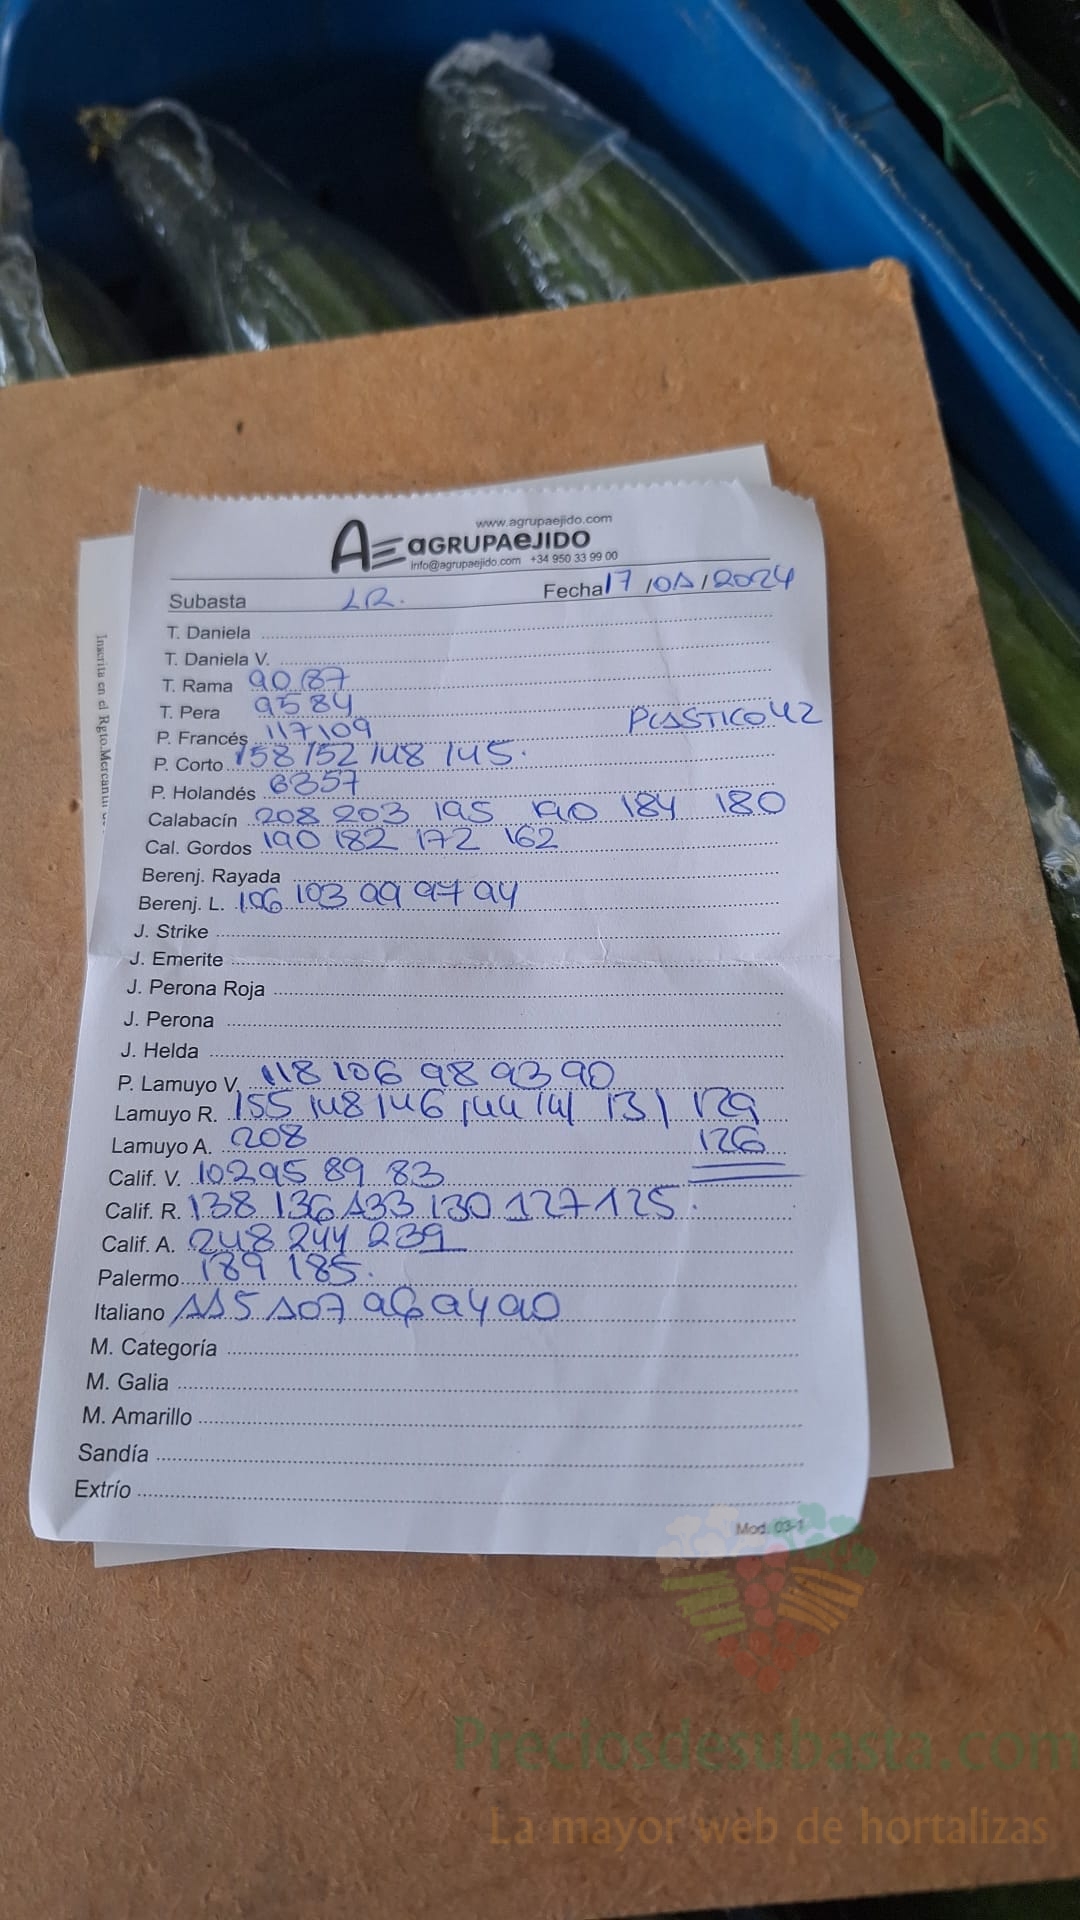 www.agrupaejido.com
AE aGRUPAeJIDO
info@agrupaejido.com +34 950 33 99 00
Subasta LR. Fecha 17/01/2024
T. Daniela
T. Daniela V.
T. Rama 90 87
T. Pera 95 84
P. Francés 117 109 PLASTICO 42
P. Corto 158 152 148 145.
P. Holandés 63 57
Calabacín 208 203 195 190 184 180
Cal. Gordos 190 182 172 162
Berenj. Rayada
Berenj. L. 106 103 99 97 94
J. Strike
J. Emerite
J. Perona Roja
J. Perona
J. Helda
P. Lamuyo V. 118 106 98 93 90
Lamuyo R. 155 148 146 144 141 131 129
Lamuyo A. 208 126
Calif. V. 102 95 89 83
Calif. R. 138 136 133 130 127 125.
Calif. A. 248 244 239
Palermo 189 185.
Italiano 115 107 96 94 90
M. Categoría
M. Galia
M. Amarillo
Sandía
Extrío
Mod. 03-1
Inscrita en el Rgto. Mercantil
Preciosdesubasta.com
La mayor web de hortalizas